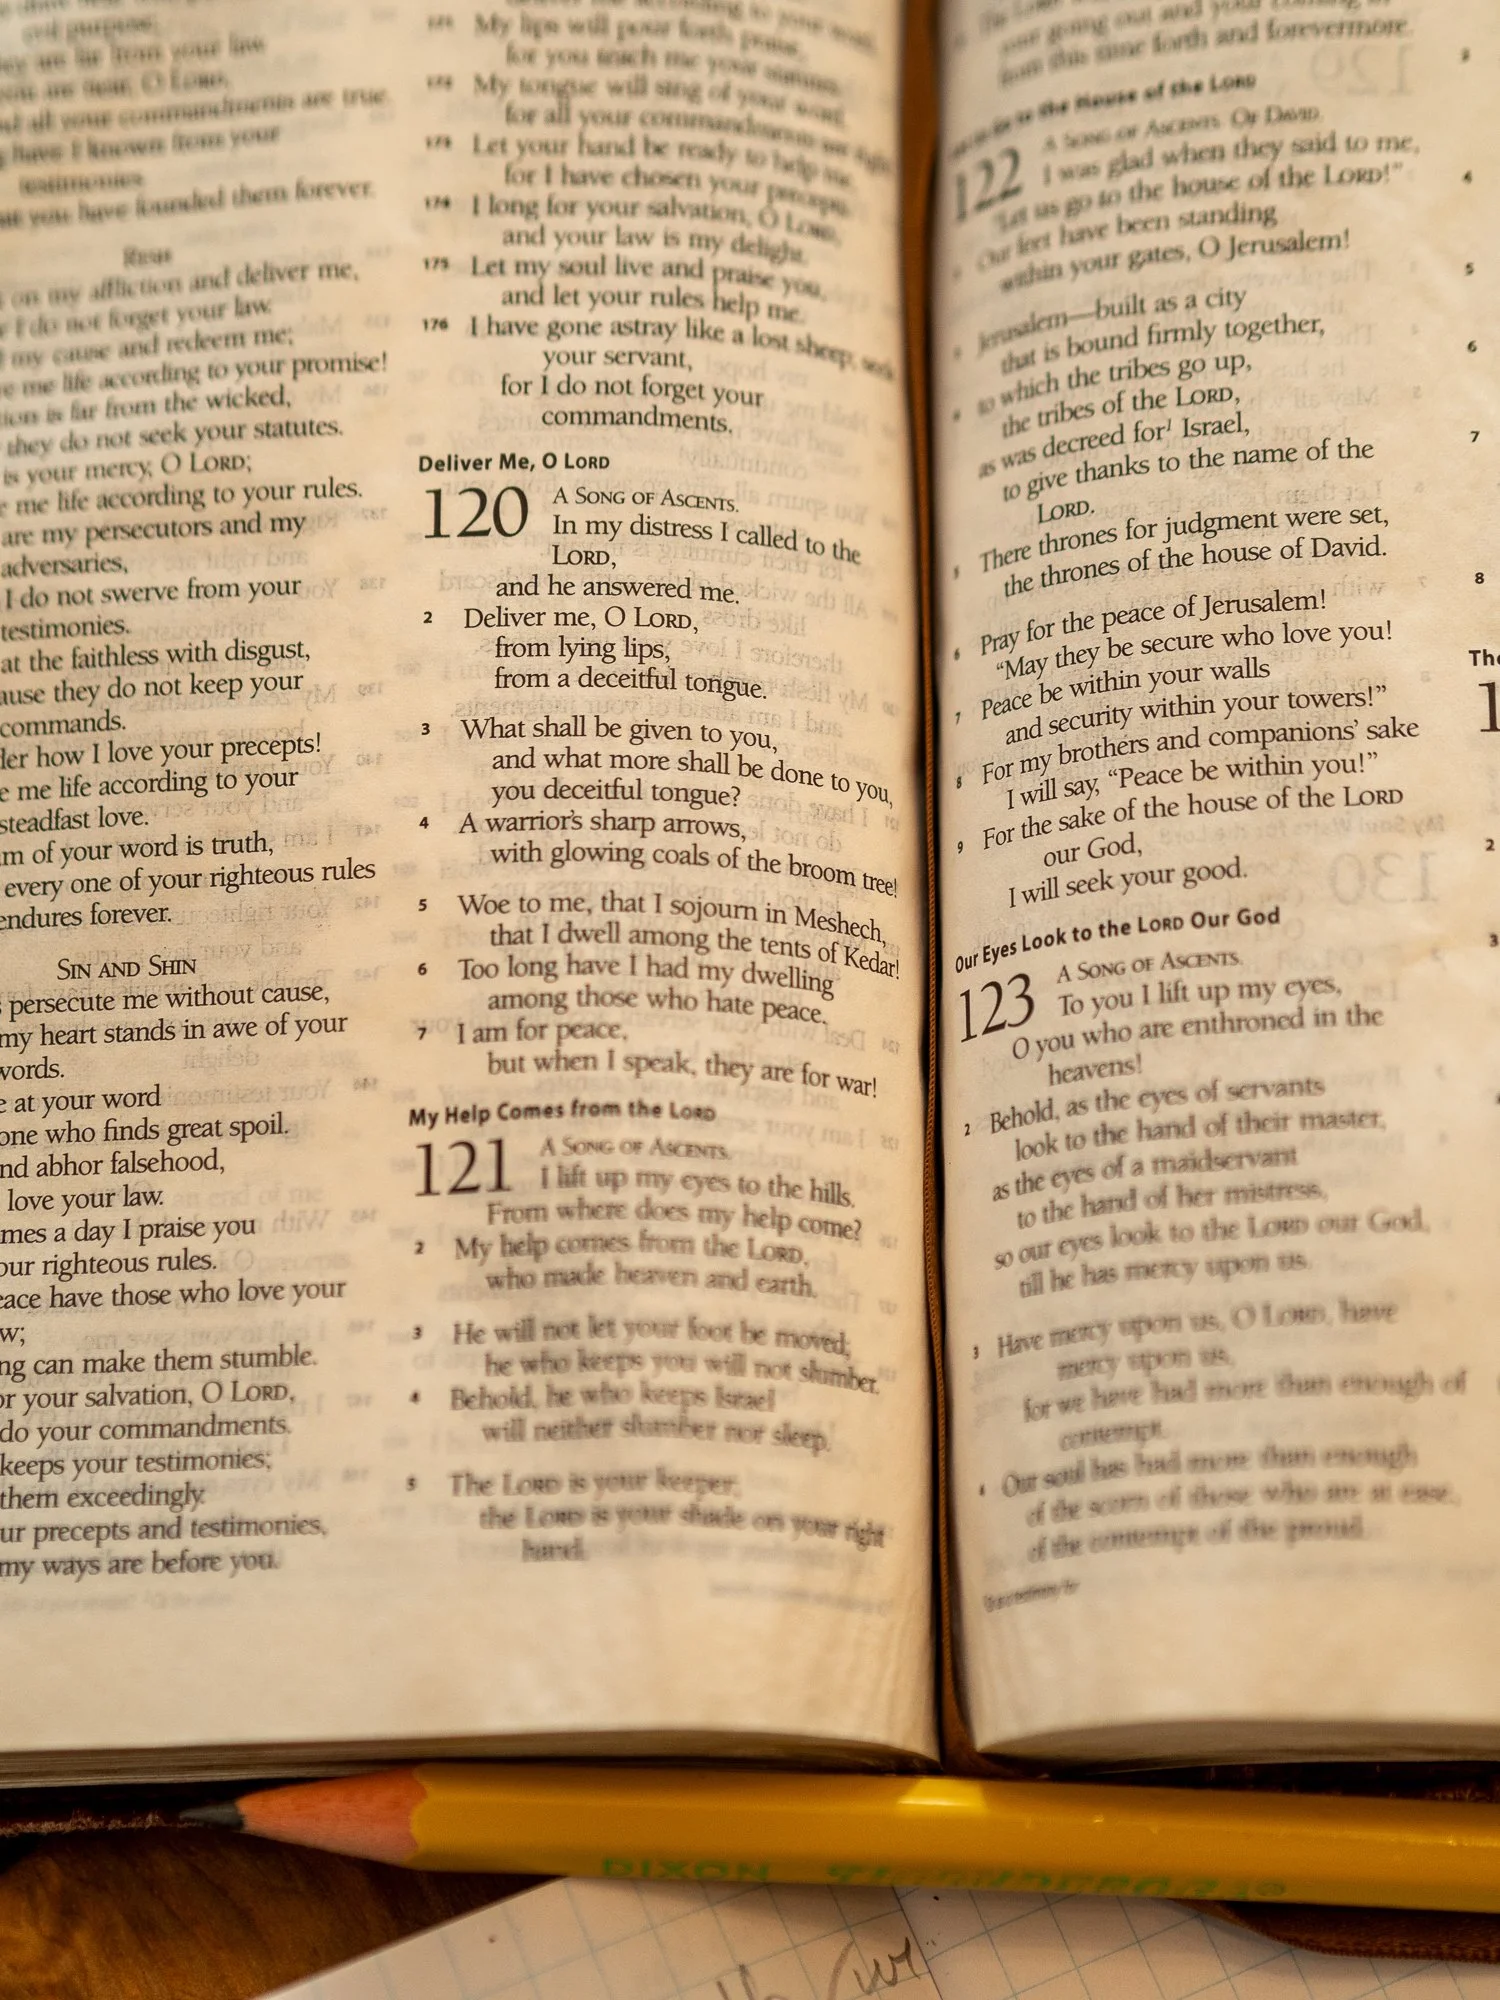 ey are far from your law
you are near, O LORD,
all your commandments are true.
have I known from your
testimonies
you have founded them forever.
RESH
on my affliction and deliver me,
I do not forget your law.
my cause and redeem me;
me life according to your promise!
is far from the wicked,
they do not seek your statutes.
is your mercy, O LORD;
me life according to your rules.
are my persecutors and my
adversaries,
I do not swerve from your
testimonies.
at the faithless with disgust,
ause they do not keep your
commands.
der how I love your precepts!
e me life according to your
steadfast love.
m of your word is truth,
every one of your righteous rules
endures forever.
SIN AND SHIN
persecute me without cause,
my heart stands in awe of your
words.
e at your word
one who finds great spoil.
nd abhor falsehood,
love your law.
mes a day I praise you
our righteous rules.
eace have those who love your
w;
ng can make them stumble.
or your salvation, O LORD,
do your commandments.
keeps your testimonies;
them exceedingly.
ur precepts and testimonies,
my ways are before you.
171 My lips will pour forth praise,
for you teach me your statutes.
172 My tongue will sing of your word,
for all your commandments are right.
173 Let your hand be ready to help me,
for I have chosen your precepts.
174 I long for your salvation, O LORD,
and your law is my delight.
175 Let my soul live and praise you,
and let your rules help me.
176 I have gone astray like a lost sheep; seek
your servant,
for I do not forget your
commandments.
Deliver Me, O LORD
120 A SONG OF ASCENTS.
In my distress I called to the
LORD,
and he answered me.
2 Deliver me, O LORD,
from lying lips,
from a deceitful tongue.
3 What shall be given to you,
and what more shall be done to you,
you deceitful tongue?
4 A warrior's sharp arrows,
with glowing coals of the broom tree!
5 Woe to me, that I sojourn in Meshech,
that I dwell among the tents of Kedar!
6 Too long have I had my dwelling
among those who hate peace.
7 I am for peace,
but when I speak, they are for war!
My Help Comes from the LORD
121 A SONG OF ASCENTS.
I lift up my eyes to the hills.
From where does my help come?
2 My help comes from the LORD,
who made heaven and earth.
3 He will not let your foot be moved;
he who keeps you will not slumber.
4 Behold, he who keeps Israel
will neither slumber nor sleep.
5 The LORD is your keeper;
the LORD is your shade on your right
hand.
your going out and your coming in
from this time forth and forevermore.
Go to the House of the LORD
122 A SONG OF ASCENTS. OF DAVID.
I was glad when they said to me,
"Let us go to the house of the LORD!"
2 Our feet have been standing
within your gates, O Jerusalem!
3 Jerusalem—built as a city
that is bound firmly together,
4 to which the tribes go up,
the tribes of the LORD,
as was decreed for1 Israel,
to give thanks to the name of the
LORD.
5 There thrones for judgment were set,
the thrones of the house of David.
6 Pray for the peace of Jerusalem!
"May they be secure who love you!
7 Peace be within your walls
and security within your towers!"
8 For my brothers and companions' sake
I will say, "Peace be within you!"
9 For the sake of the house of the LORD
our God,
I will seek your good.
Our Eyes Look to the LORD Our God
123 A SONG OF ASCENTS.
To you I lift up my eyes,
O you who are enthroned in the
heavens!
2 Behold, as the eyes of servants
look to the hand of their master,
as the eyes of a maidservant
to the hand of her mistress,
so our eyes look to the LORD our God,
till he has mercy upon us.
3 Have mercy upon us, O LORD, have
mercy upon us,
for we have had more than enough of
contempt.
4 Our soul has had more than enough
of the scorn of those who are at ease,
of the contempt of the proud.
3
4
5
6
7
8
The
1
2
3
DIXON